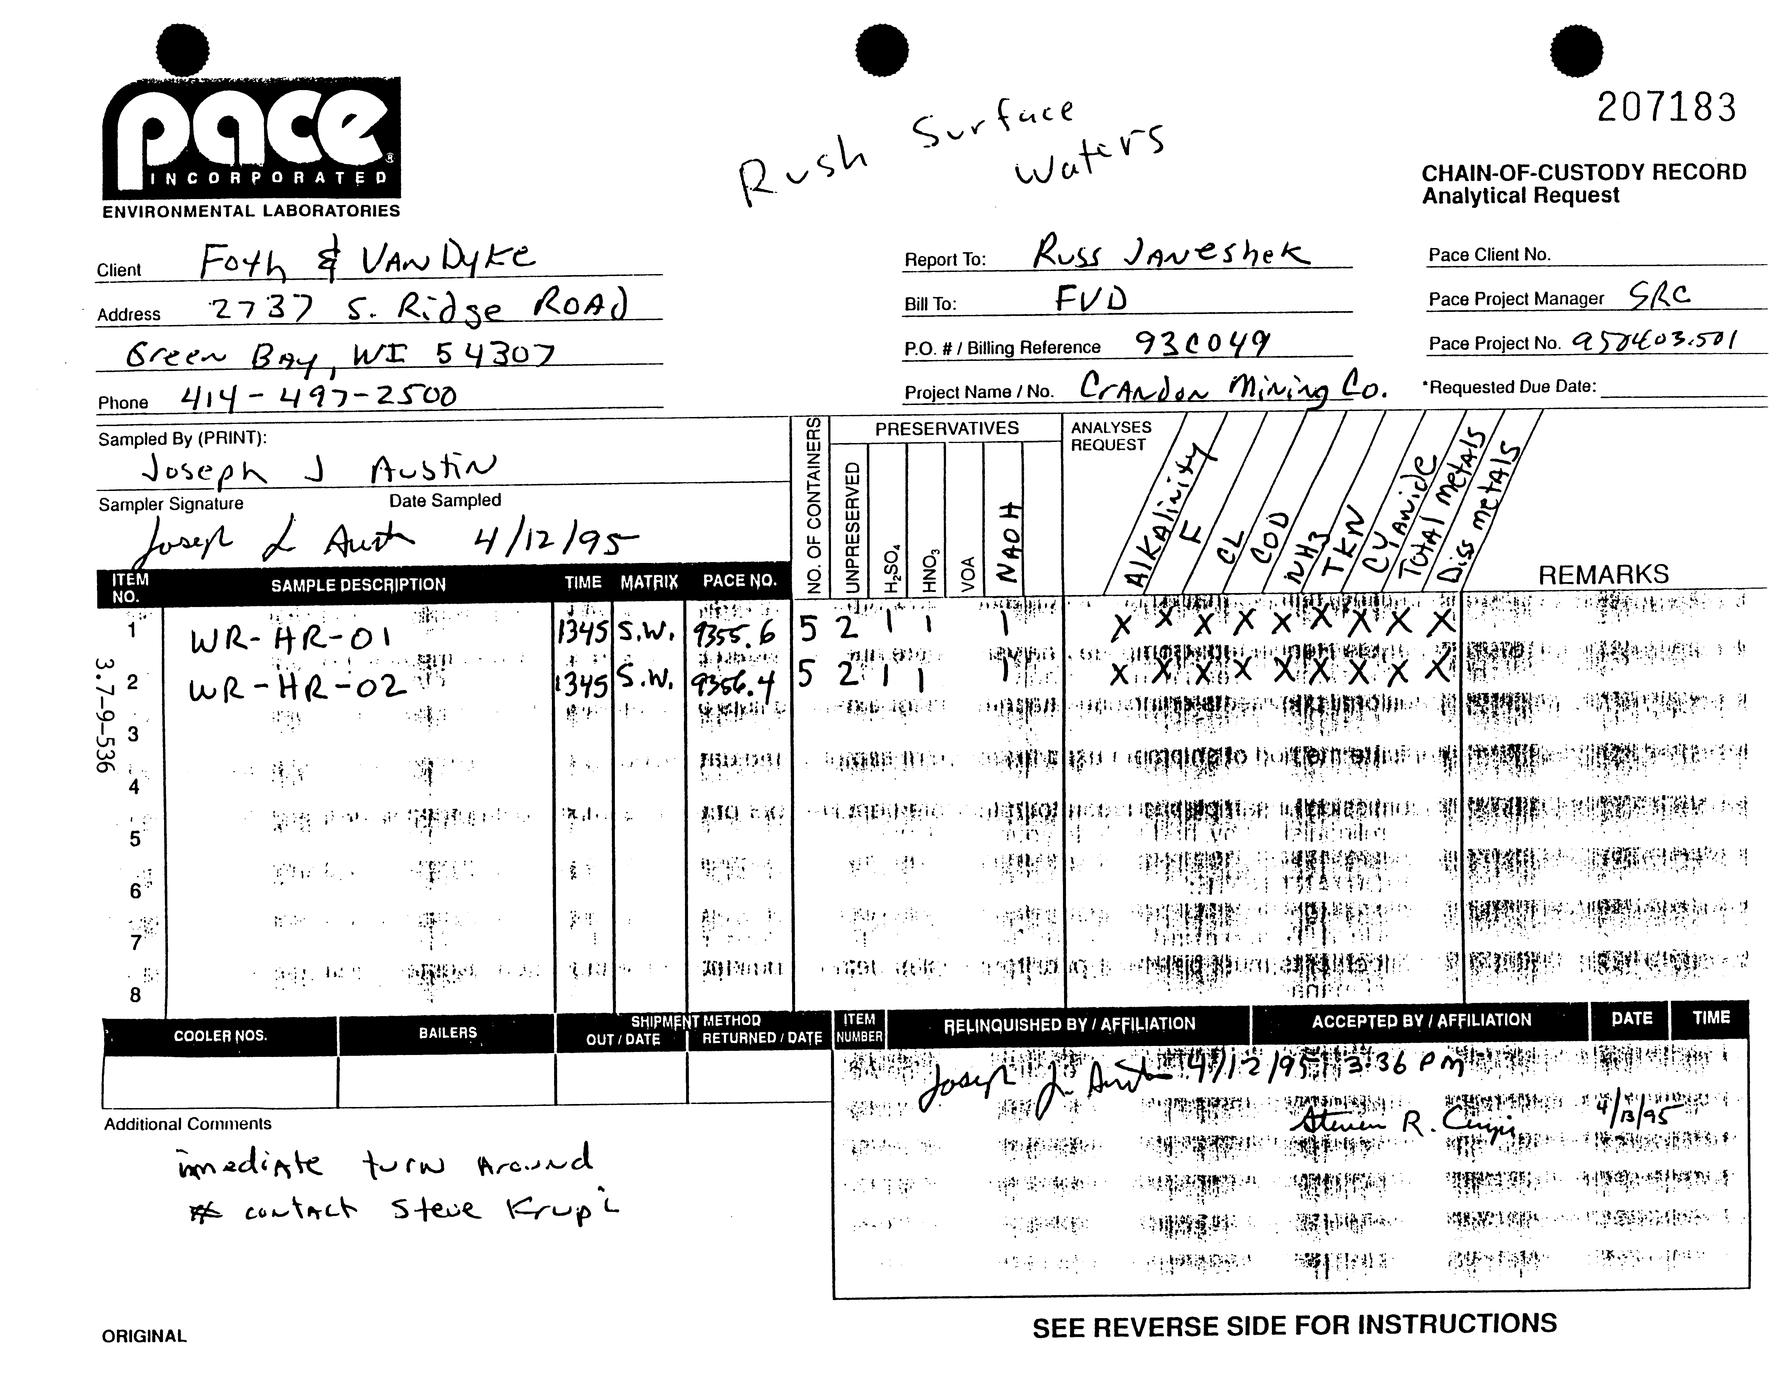 pace®
INCORPORATED
ENVIRONMENTAL LABORATORIES
Rush Surface
Waters
207183
CHAIN-OF-CUSTODY RECORD
Analytical Request
Client Foth & VanDyke
Address 2737 S. Ridge Road
Green Bay, WI 54307
Phone 414-497-2500
Report To: Russ Janeshek
Bill To: FVD
P.O. # / Billing Reference 93C049
Project Name / No. Crandon Mining Co.
Pace Client No.
Pace Project Manager SRC
Pace Project No. 950403.501
*Requested Due Date:
Sampled By (PRINT):
Joseph J Austin
Sampler Signature Date Sampled
Joseph J Austin 4/12/95
NO. OF CONTAINERS
PRESERVATIVES
UNPRESERVED
H₂SO₄
HNO₃
VOA
NAOH
ANALYSES
REQUEST
Alkalinity
F
CL
COD
NH3
TKN
Cyanide
Total Metals
Diss metals
REMARKS
ITEM NO. SAMPLE DESCRIPTION TIME MATRIX PACE NO.
1 WR-HR-01 1345 S.W. 9355.6 5 2 1 1 1 X X X X X X X X X
2 WR-HR-02 1345 S.W. 9356.4 5 2 1 1 1 X X X X X X X X X
3
4
5
6
7
8
3.7-9-536
COOLER NOS. BAILERS SHIPMENT METHOD
OUT / DATE RETURNED / DATE
ITEM NUMBER RELINQUISHED BY / AFFILIATION ACCEPTED BY / AFFILIATION DATE TIME
Joseph J Austin 4/12/95 3:36 PM
Steven R. 4/13/95
Additional Comments
immediate turn around
* contact Steve Krupi
ORIGINAL
SEE REVERSE SIDE FOR INSTRUCTIONS